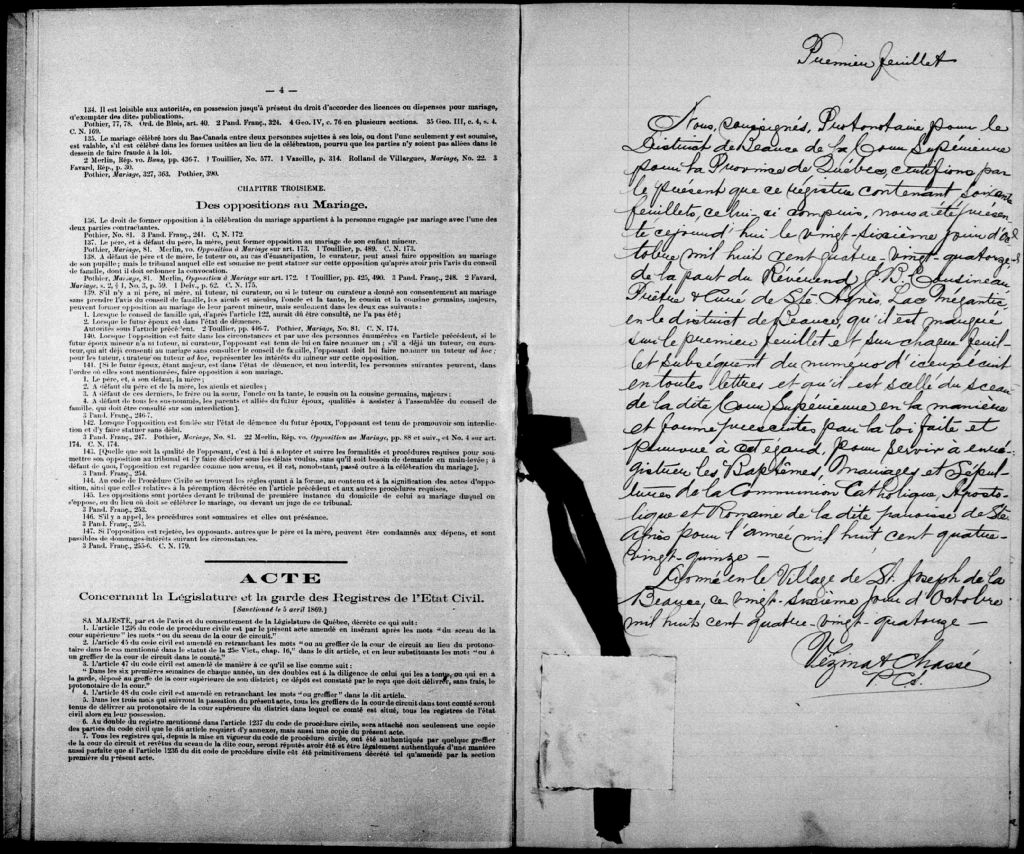 — 4 —
134. Il est loisible aux autorités, en possession jusqu'à présent du droit d'accorder des licences ou dispenses pour mariage,
d'exempter des dites publications.
Pothier, 77, 78. Ord. de Blois, art. 40. 2 Pand. Franç., 324. 4 Geo. IV, c. 76 en plusieurs sections. 35 Geo. III, c. 4, s. 4.
C. N. 169.
135. Le mariage célébré hors du Bas-Canada entre deux personnes sujettes à ses lois, ou dont l'une seulement y est soumise,
est valable, s'il est célébré dans les formes usitées au lieu de la célébration, pourvu que les parties n'y soient pas allées dans le
dessein de faire fraude à la loi.
2 Merlin, Rép. vo. Bans, pp. 436-7. 1 Touillier, No. 577. 1 Vazeille, p. 314. Rolland de Villargues, Mariage, No. 22. 3
Favard, Rép., p. 30.
Pothier, Mariage, 327, 363. Pothier, 390.
CHAPITRE TROISIEME.
Des oppositions au Mariage.
136. Le droit de former opposition à la célébration du mariage appartient à la personne engagée par mariage avec l'une des
deux parties contractantes.
Pothier, No. 81. 3 Pand. Franç., 241. C, N. 172.
137. Le père, et à défaut du père, la mère, peut former opposition au mariage de son enfant mineur.
Pothier, Mariage, 81. Merlin, vo. Opposition à Mariage sur art. 173. 1 Touillier, p. 489. C. N. 173.
138. A défaut de père et de mère, le tuteur ou, au cas d'émancipation, le curateur, peut aussi faire opposition au mariage
de son pupille; mais le tribunal auquel elle est soumise ne peut statuer sur cette opposition qu'après avoir pris l'avis du conseil
de famille, dont il doit ordonner la convocation.
Pothier, Mariage, 81. Merlin, Opposition à Mariage sur art. 172. 1 Touillier, pp. 425, 490. 3 Pand. Franç., 248. 2 Favard,
Mariage, s. 2, § 1, No. 3, p. 59. 1 Delv., p. 62. C. N. 175.
139. S'il n'y a ni père, ni mère, ni tuteur, ni curateur, ou si le tuteur ou curateur a donné son consentement au mariage
sans prendre l'avis du conseil de famille, les aïeuls et aïeules, l'oncle et la tante, le cousin et la cousine germains, majeurs,
peuvent former opposition au mariage de leur parent mineur, mais seulement dans les deux cas suivants:
1. Lorsque le conseil de famille qui, d'après l'article 122, aurait dû être consulté, ne l'a pas été;
2. Lorsque le futur époux est dans l'état de démence.
Autorités sous l'article précédent. 2 Toullier, pp. 446-7. Pothier, Mariage, No. 81. C. N. 174.
140. Lorsque l'opposition est faite par une des personnes énumérées en l'article précédent, si le
futur époux mineur n'a ni tuteur, ni curateur, l'opposant est tenu de lui en faire nommer un; s'il a déjà un tuteur, ou cura-
teur, qui ait déjà consenti au mariage sans consulter le conseil de famille, l'opposant doit lui faire nommer un tuteur ad hoc;
pour les tuteur, curateur ou tuteur ad hoc, représenter les intérêts du mineur sur cette opposition.
141. [Si le futur époux, étant majeur, est dans l'état de démence, et non interdit, les personnes suivantes peuvent, dans
l'ordre où elles sont mentionnées, faire opposition à son mariage.
1. Le père, et, à son défaut, la mère;
2. A défaut du père et de la mère, les aïeuls et aïeules;
3. A défaut de ces derniers, le frère ou la sœur, l'oncle ou la tante, le cousin ou la cousine germains, majeurs;
4. A défaut de tous les sus-nommés, les parents et alliés du futur époux, qualifiés à assister à l'assemblée du conseil de
famille, qui doit être consulté sur son interdiction].
3 Pand. Franç., 246-7.
142. Lorsque l'opposition est fondée sur l'état de démence du futur époux, l'opposant est tenu de promouvoir son interdic-
tion et d'y faire statuer sans délai.
3 Pand. Franç., 247. Pothier, Mariage, No. 81. 22 Merlin, Rép. vo. Opposition au Mariage, pp. 88 et suiv., et No. 4 sur art.
174. C. N. 174.
143. [Quelle que soit la qualité de l'opposant, c'est à lui à adopter et suivre les formalités et procédures requises pour sou-
mettre son opposition au tribunal et l'y faire décider sous les délais voulus, sans qu'il soit besoin de demande en main-levée; à
défaut de quoi, l'opposition est regardée comme non avenu, et il est, nonobstant, passé outre à la célébration du mariage].
3 Pand. Franç., 254.
144. Au code de Procédure Civile se trouvent les règles quant à la forme, au contenu et à la signification des actes d'oppo-
sition, ainsi que celles relatives à la péremption décrétée en l'article précédent et aux autres procédures requises.
145. Les oppositions sont portées devant le tribunal de première instance du domicile de celui au mariage duquel on
s'oppose, ou du lieu où doit se célébrer le mariage, ou devant un juge de ce tribunal.
3 Pand. Franç., 253.
146. S'il y a appel, les procédures sont sommaires et elles ont préséance.
3 Pand. Franç., 253.
147. Si l'opposition est rejetée, les opposants, autres que le père et la mère, peuvent être condamnés aux dépens, et sont
passibles de dommages-intérêts suivant les circonstances.
3 Pand. Franç., 255-6. C. N. 179.
ACTE
Concernant la Législature et la garde des Registres de l'Etat Civil.
[Sanctionné le 5 avril 1869.]
SA MAJESTE, par et de l'avis et du consentement de la Législature de Québec, décrète ce qui suit:
1. L'article 1236 du code de procédure civile est par le présent acte amendé en insérant après les mots "du sceau de la
cour supérieure" les mots "ou du sceau de la cour de circuit."
2. L'article 45 du code civil est amendé en retranchant les mots "ou au greffier de la cour de circuit au lieu du protono-
taire dans le cas mentionné dans le statut de la 25e Vict., chap. 16," dans le dit article, et en leur substituants les mots "ou à
un greffier de la cour de circuit dans le comté."
3. L'article 47 du code civil est amendé de manière à ce qu'il se lise comme suit:
" Dans les six premières semaines de chaque année, un des doubles est à la diligence de celui qui les a tenus, ou qui en a
la garde, déposé au greffe de la cour supérieure de son district; ce dépôt est constaté par le reçu que doit délivrer, sans frais, le
protonotaire de la cour."
4. L'article 48 du code civil est amendé en retranchant les mots "ou greffier" dans le dit article.
5. Dans les trois mois qui suivront la passation du présent acte, tous les greffiers de la cour de circuit dans tout comté seront
tenus de délivrer au protonotaire de la cour supérieure du district dans lequel ce comté est situé, tous les registres de l'état
civil alors en leur possession.
6. Au double du registre mentionné dans l'article 1237 du code de procédure civile, sera attaché non seulement une copie
des parties du code civil que le dit article requiert d'y annexer, mais aussi une copie du présent acte.
7. Tous les registres qui, depuis la mise en vigueur du code de procédure civile, ont été authentiqués par quelque greffier
de la cour de circuit et revêtus du sceau de la dite cour, seront réputés avoir été et être légalement authentiqués d'une manière
aussi parfaite que si l'article 1236 du dit code de procédure civile eût été primitivement décrété tel qu'amendé par la section
première du présent acte.
Premier feuillet
Nous, soussignés, Protonotaire pour le
District de Beauce de la Cour Supérieure
pour la Province de Québec, certifions par
le présent que ce registre contenant soixante
feuillets, celui-ci compris, nous a été présen-
té ce jourd'hui le vingt-sixième jour d'oc-
tobre mil huit cent quatre-vingt-quatorze
de la part du Révérend J. B. Cousineau,
Prêtre & Curé de Ste Agnès, Lac Mégantic
en le district de Beauce, qu'il est marqué
sur le premier feuillet et sur chaque feuil-
let subséquent du numéro d'iceux écrit
en toutes lettres et qu'il est scellé du sceau
de la dite Cour Supérieure en la manière
et forme prescrites par la loi faite et
pourvue à cet égard, pour servir à enré-
gistrer les Baptêmes, Mariages et Sépul-
tures de la Communion Catholique, Aposto-
lique et Romaine de la dite paroisse de Ste
Agnès pour l'année mil huit cent quatre-
vingt-quinze —
Donné en le Village de St. Joseph de la
Beauce, ce vingt-sixième jour d'Octobre
mil huit cent quatre-vingt-quatorze —
Vézina & Chassé
P.C.S.